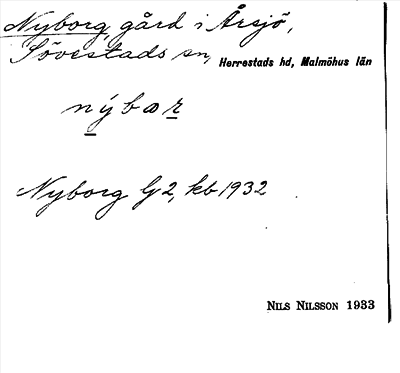 Nyborg, gård i Årsjö,
Sövestads sn, Herrestads hd, Malmöhus län
nýbaʀ
Nyborg G2, kb 1932
NILS NILSSON 1933